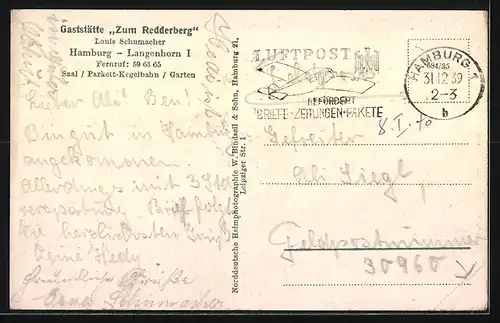 Gaststätte „Zum Redderberg"
Louis Schumacher
Hamburg - Langenhorn I
Fernruf: 59 63 65
Saal / Parkett-Kegelbahn / Garten
Lieber Ali! Ben!
Bin gut in Hamburg
angekommen.
Allerdings mit 3 Std
verspätung. Brief folgt
die herzlichsten Grüße
Deine Heely
Freundliche Grüße
Schumacher
Norddeutsche Heimphotographie W. Bindseil & Sohn, Hamburg 21,
Leipziger Str. 1
LUFTPOST
BEFÖRDERT
BRIEFE-ZEITUNGEN-PAKETE
HAMBURG 1
084/85
31.12.39
2-3
b
Feldpost
8. I. 40
Gefreiter
Ali Siegl,
Feldpostnummer
30960